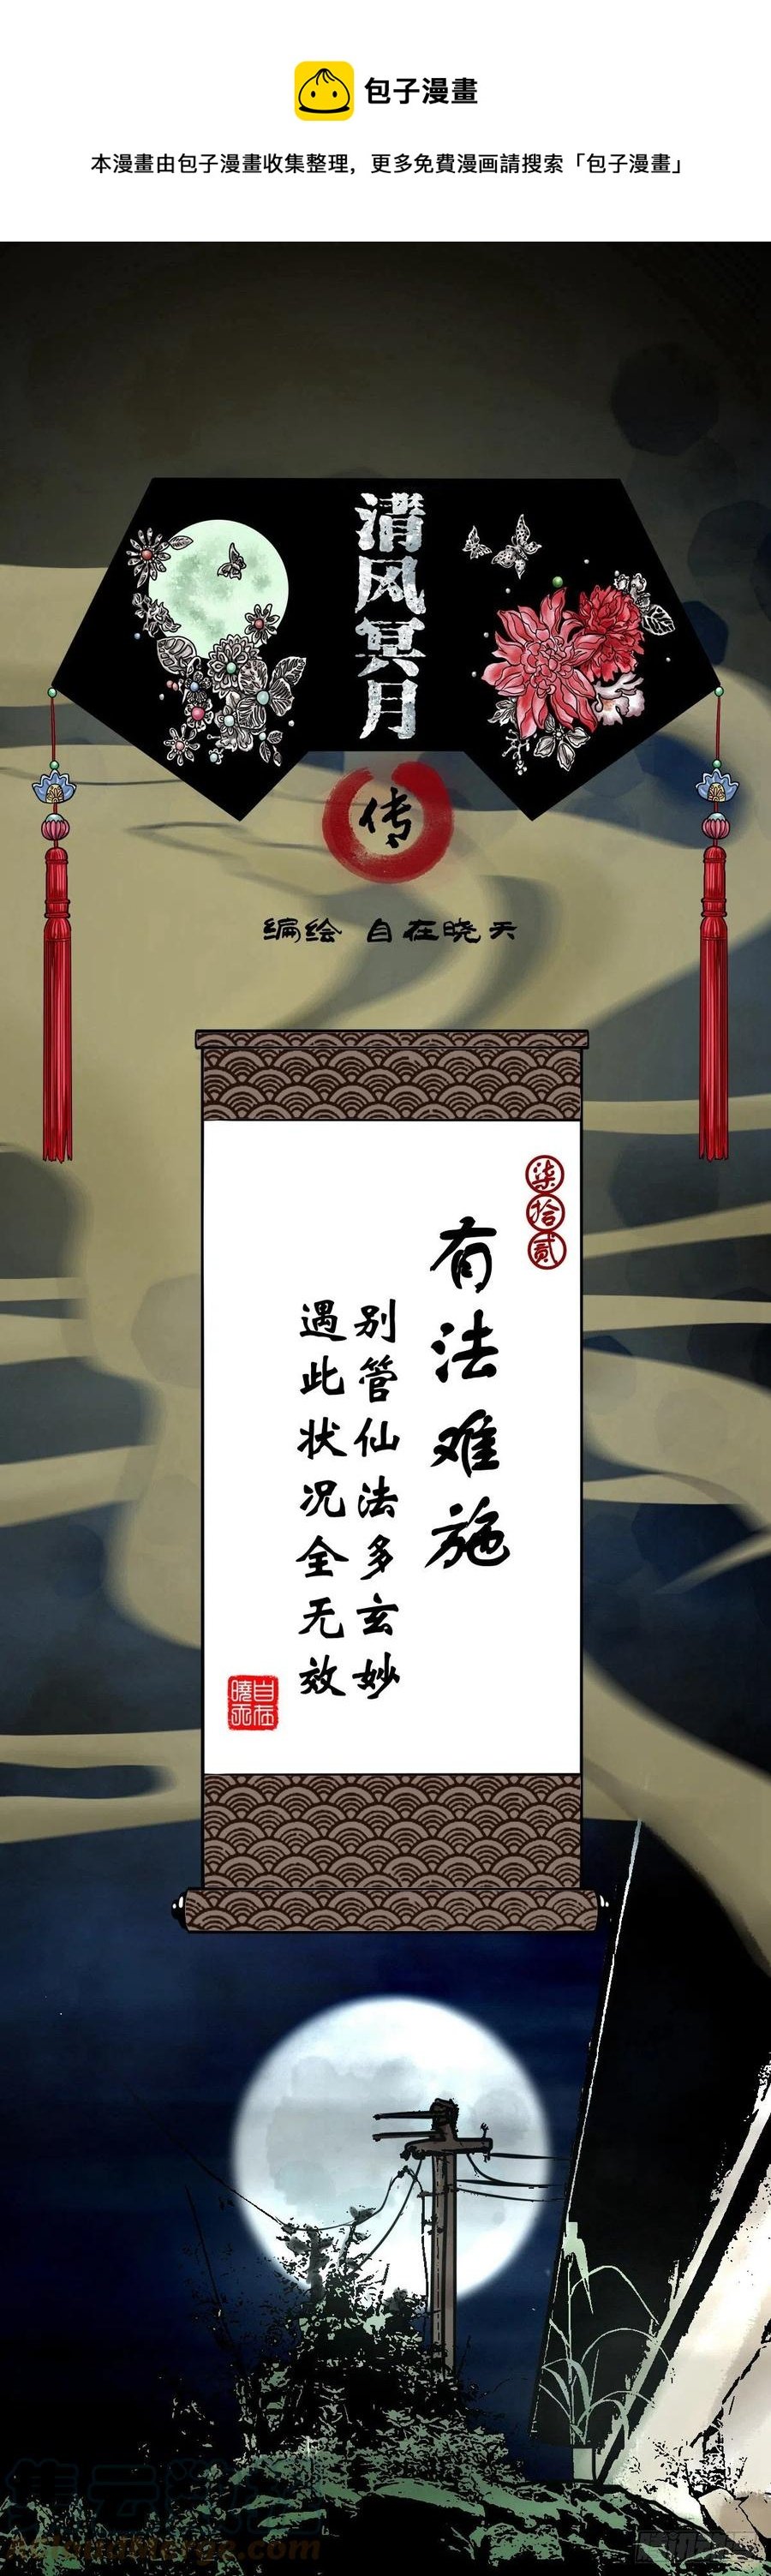 包子漫畫
本漫畫由包子漫畫收集整理，更多免費漫画請搜索「包子漫畫」
清风冥月
传
编绘 自在晓天
柒拾贰
有法难施
别管仙法多玄妙
遇此状况全无效
自在
曉天